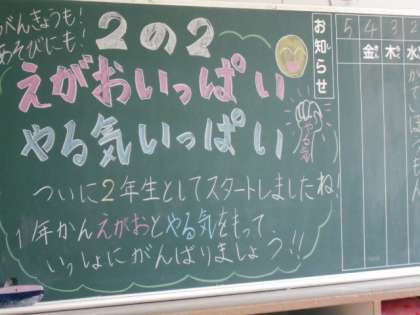 べんきょうも！
あそびにも！
2の2
えがおいっぱい
やる気いっぱい
やる気
ついに2年生としてスタートしましたね！
1年かんえがおとやる気をもって、
いっしょにがんばりましょう!!
お知らせ
5 4 3 2
金 木 水